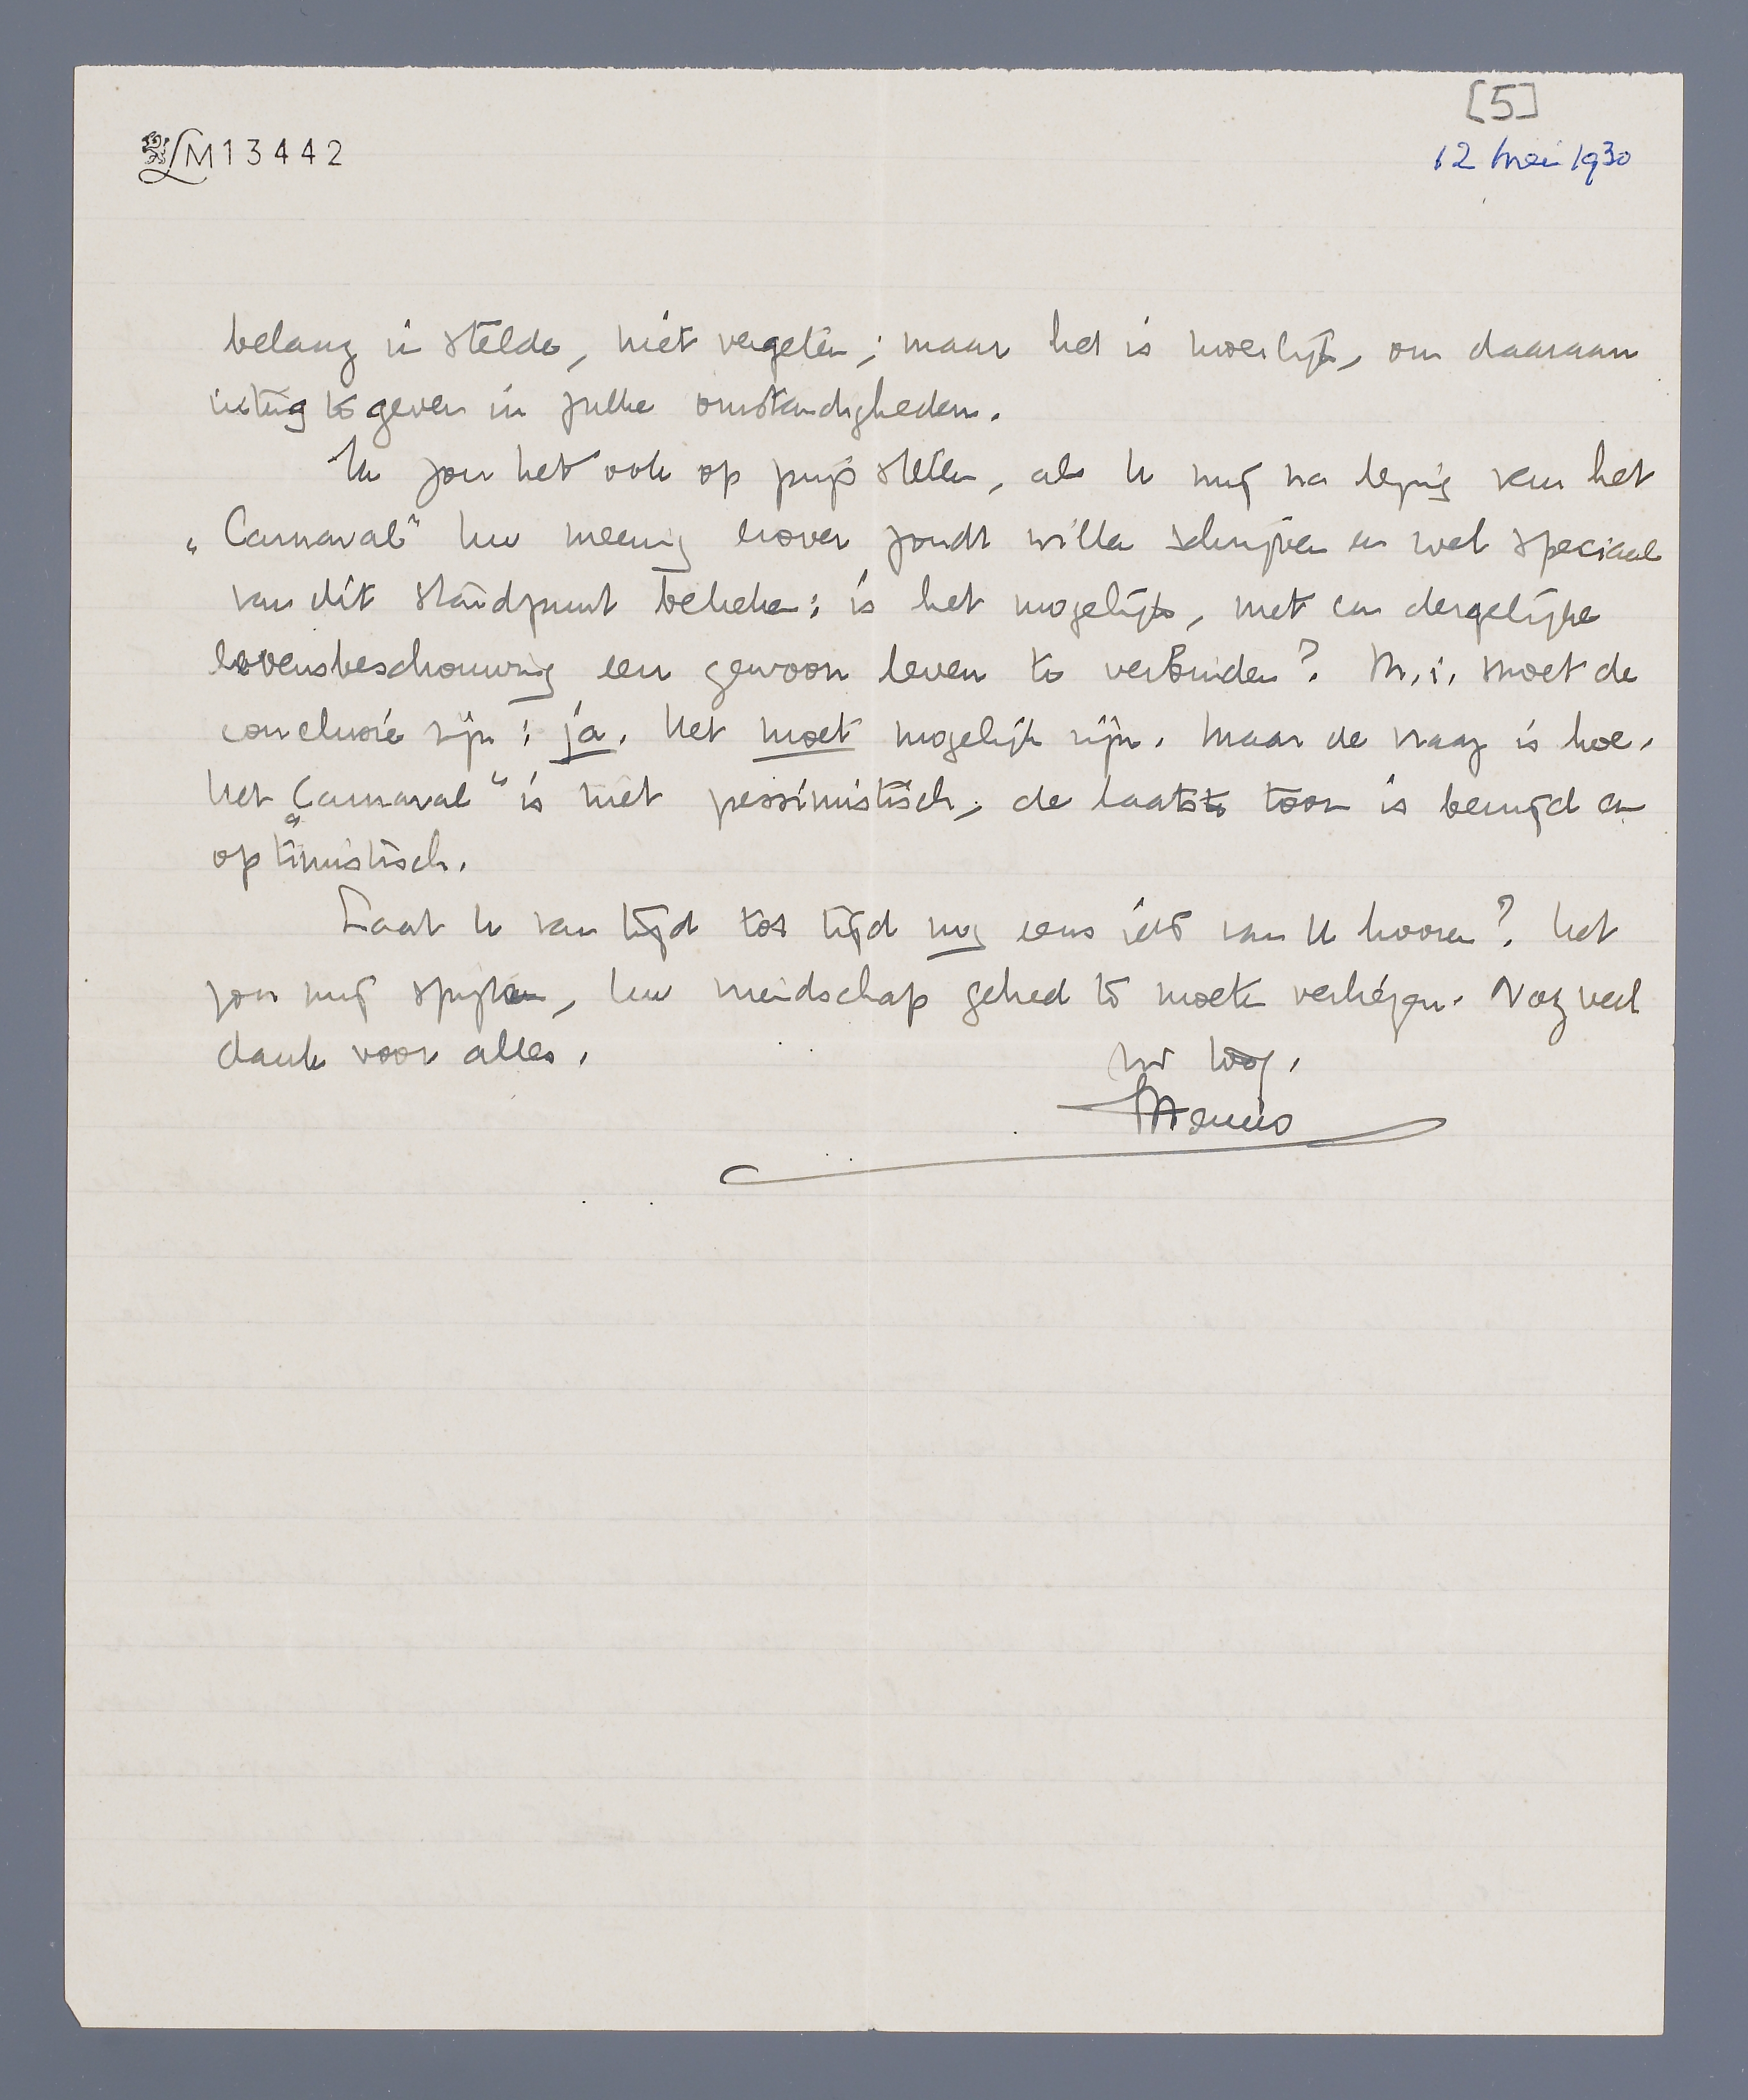 LM13442
[5]
12 mei 1930
belang in stelde, niet vergeten; maar het is moeilijk, om daaraan
uiting te geven in zulke omstandigheden.
Ik zou het ook op prijs stellen, als U mij na lezing van het
„Carnaval” Uw meening erover zoudt willen schrijven en wel speciaal
van dit standpunt bekeken: is het mogelijk, met een dergelijke
levensbeschouwing een gewoon leven te verbinden? M.i. moet de
conclusie zijn: ja. Het moet mogelijk zijn. Maar de vraag is hoe.
Het „Carnaval” is niet pessimistisch, de laatste toon is bevrijd en
optimistisch.
Laat U van tijd tot tijd nog eens iets van U hooren? Het
zou mij spijten, Uw vriendschap geheel te moeten verliezen. Nog veel
dank voor alles.
Menno